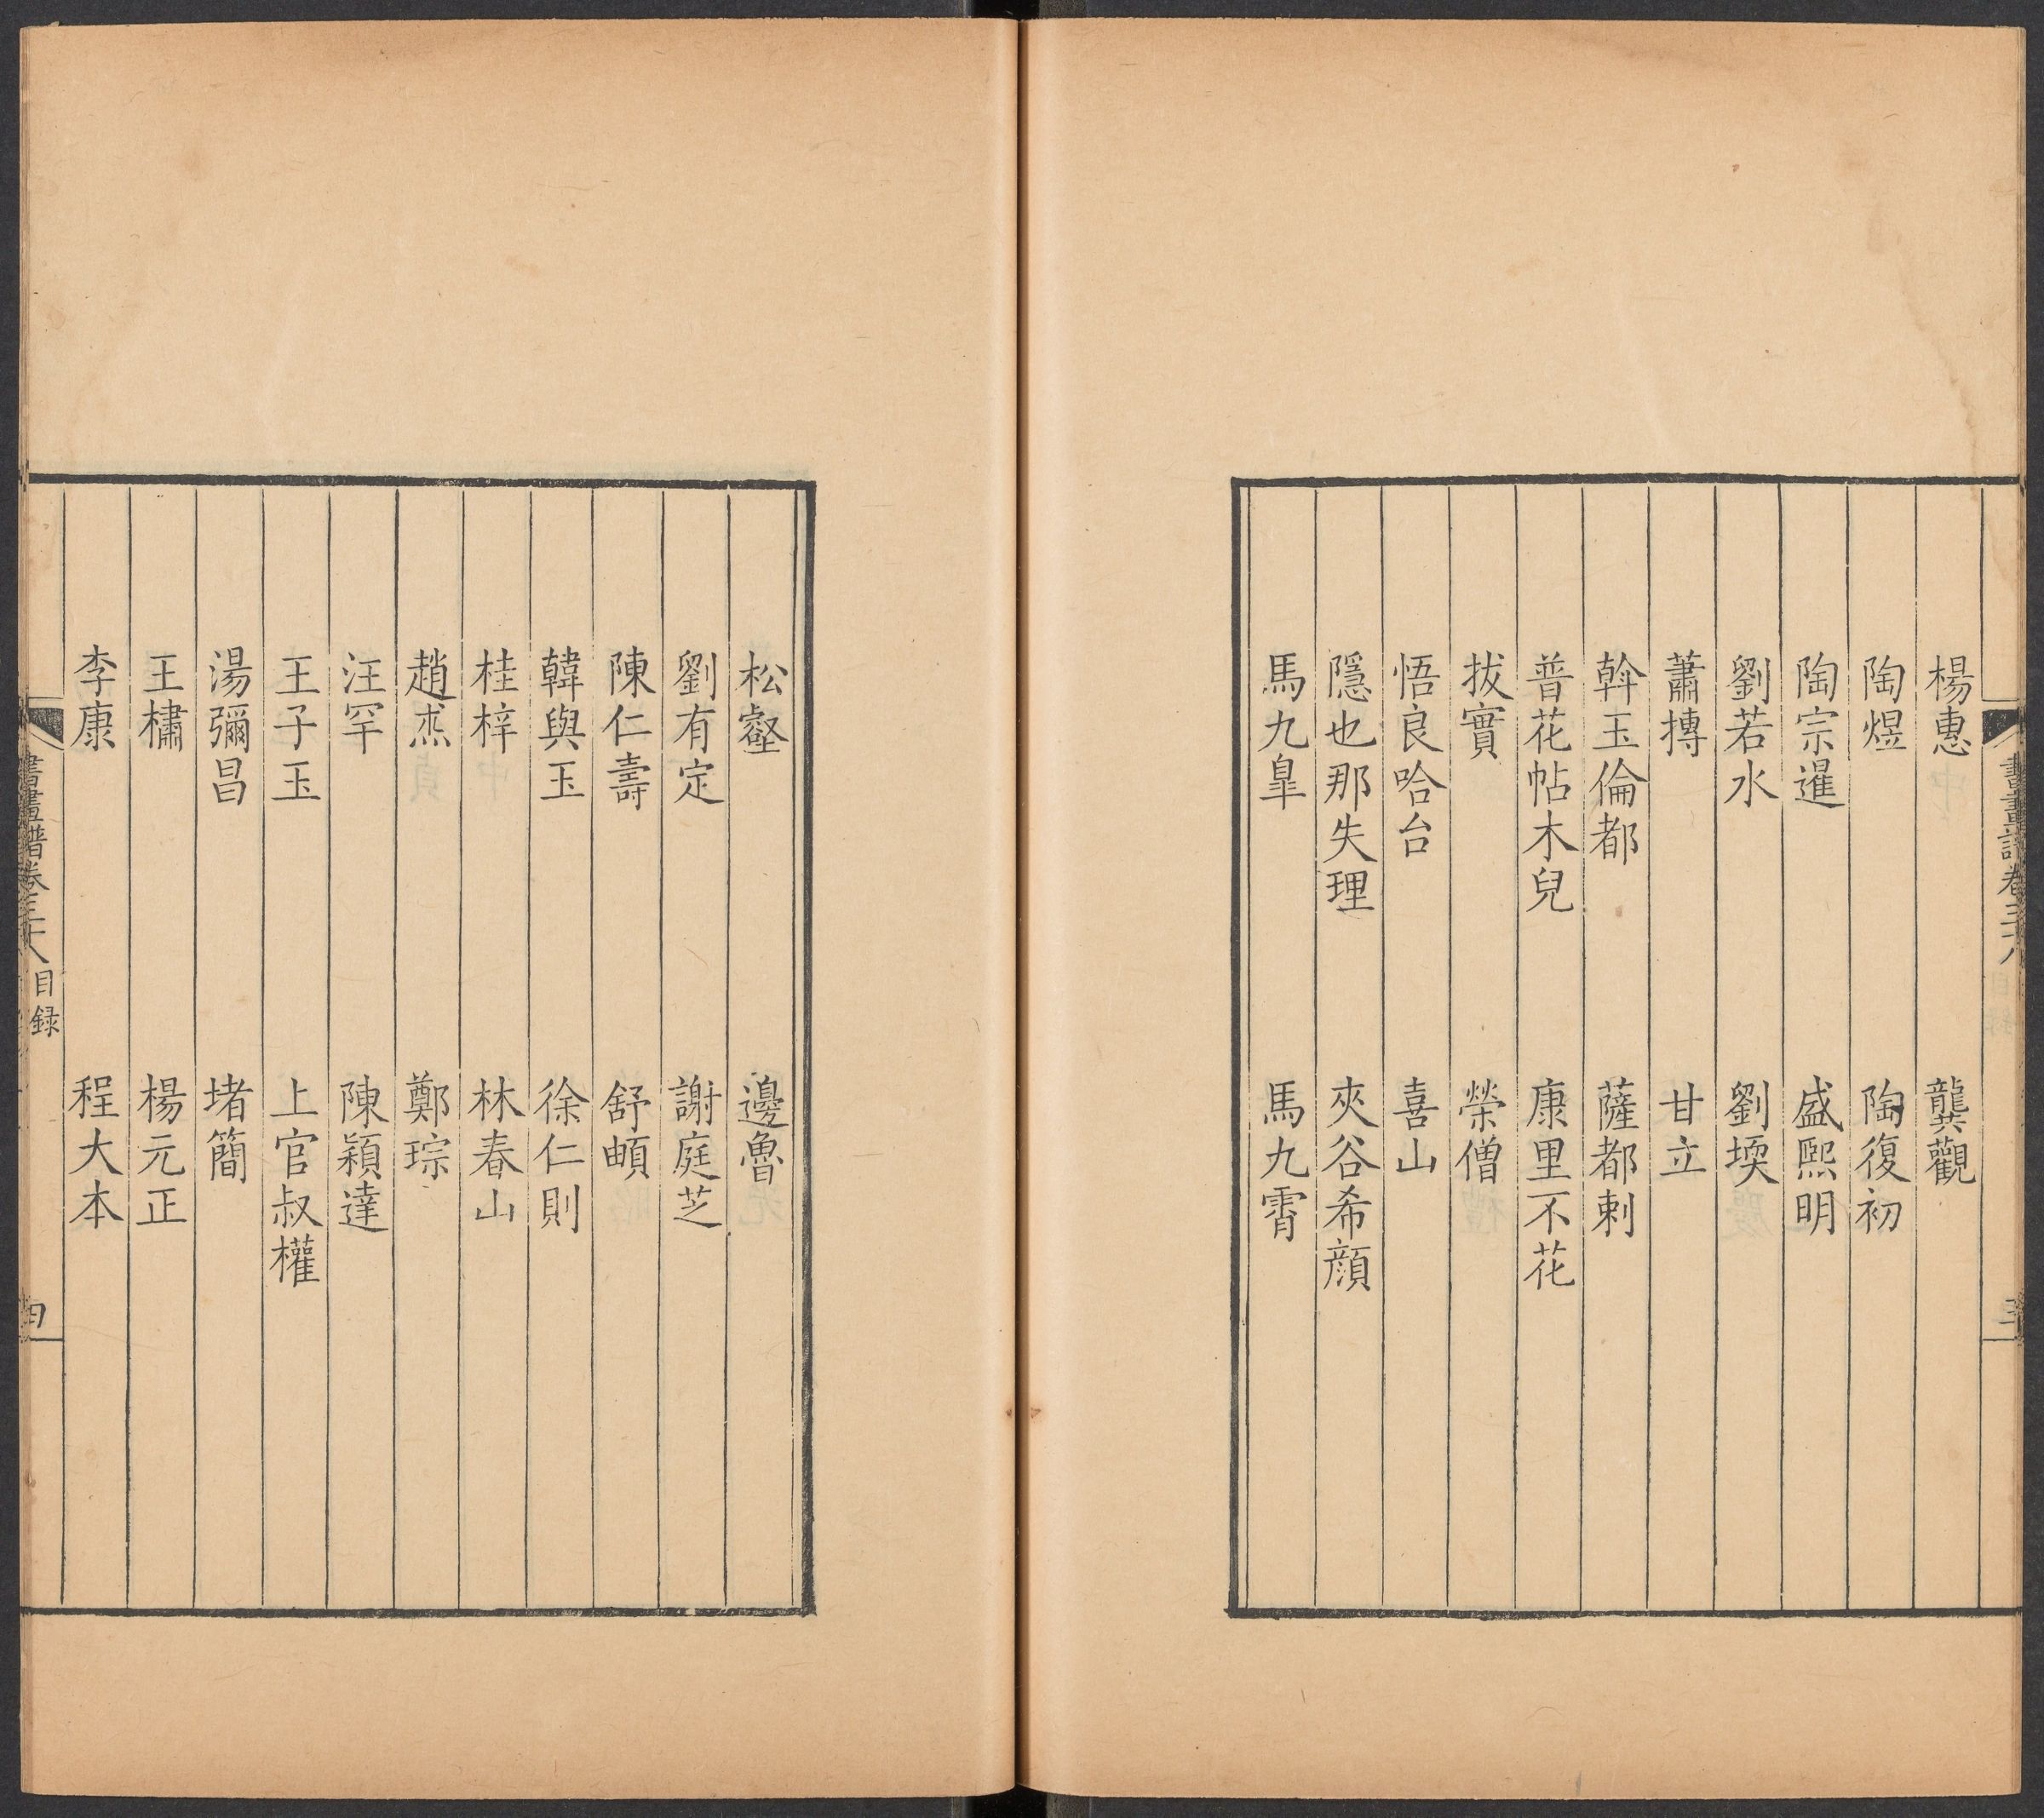 書畫譜卷三十八
楊惠 龔觀
陶煜 陶復初
陶宗暹 盛熙明
劉若水 劉堧
蕭摶 甘立
斡玉倫都 薩都剌
普花帖木兒 康里不花
拔實 榮僧
悟良哈台 喜山
隱也那失理 夾谷希顔
馬九臯 馬九霄
松壑 邊魯
劉有定 謝庭芝
陳仁壽 舒頔
韓與玉 徐仁則
桂梓 林春山
趙𤇺 鄭琮
汪罕 陳穎達
王子玉 上官叔權
湯彌昌 堵簡
王橚 楊元正
李康 程大本
書畫譜卷三十八 目録 四